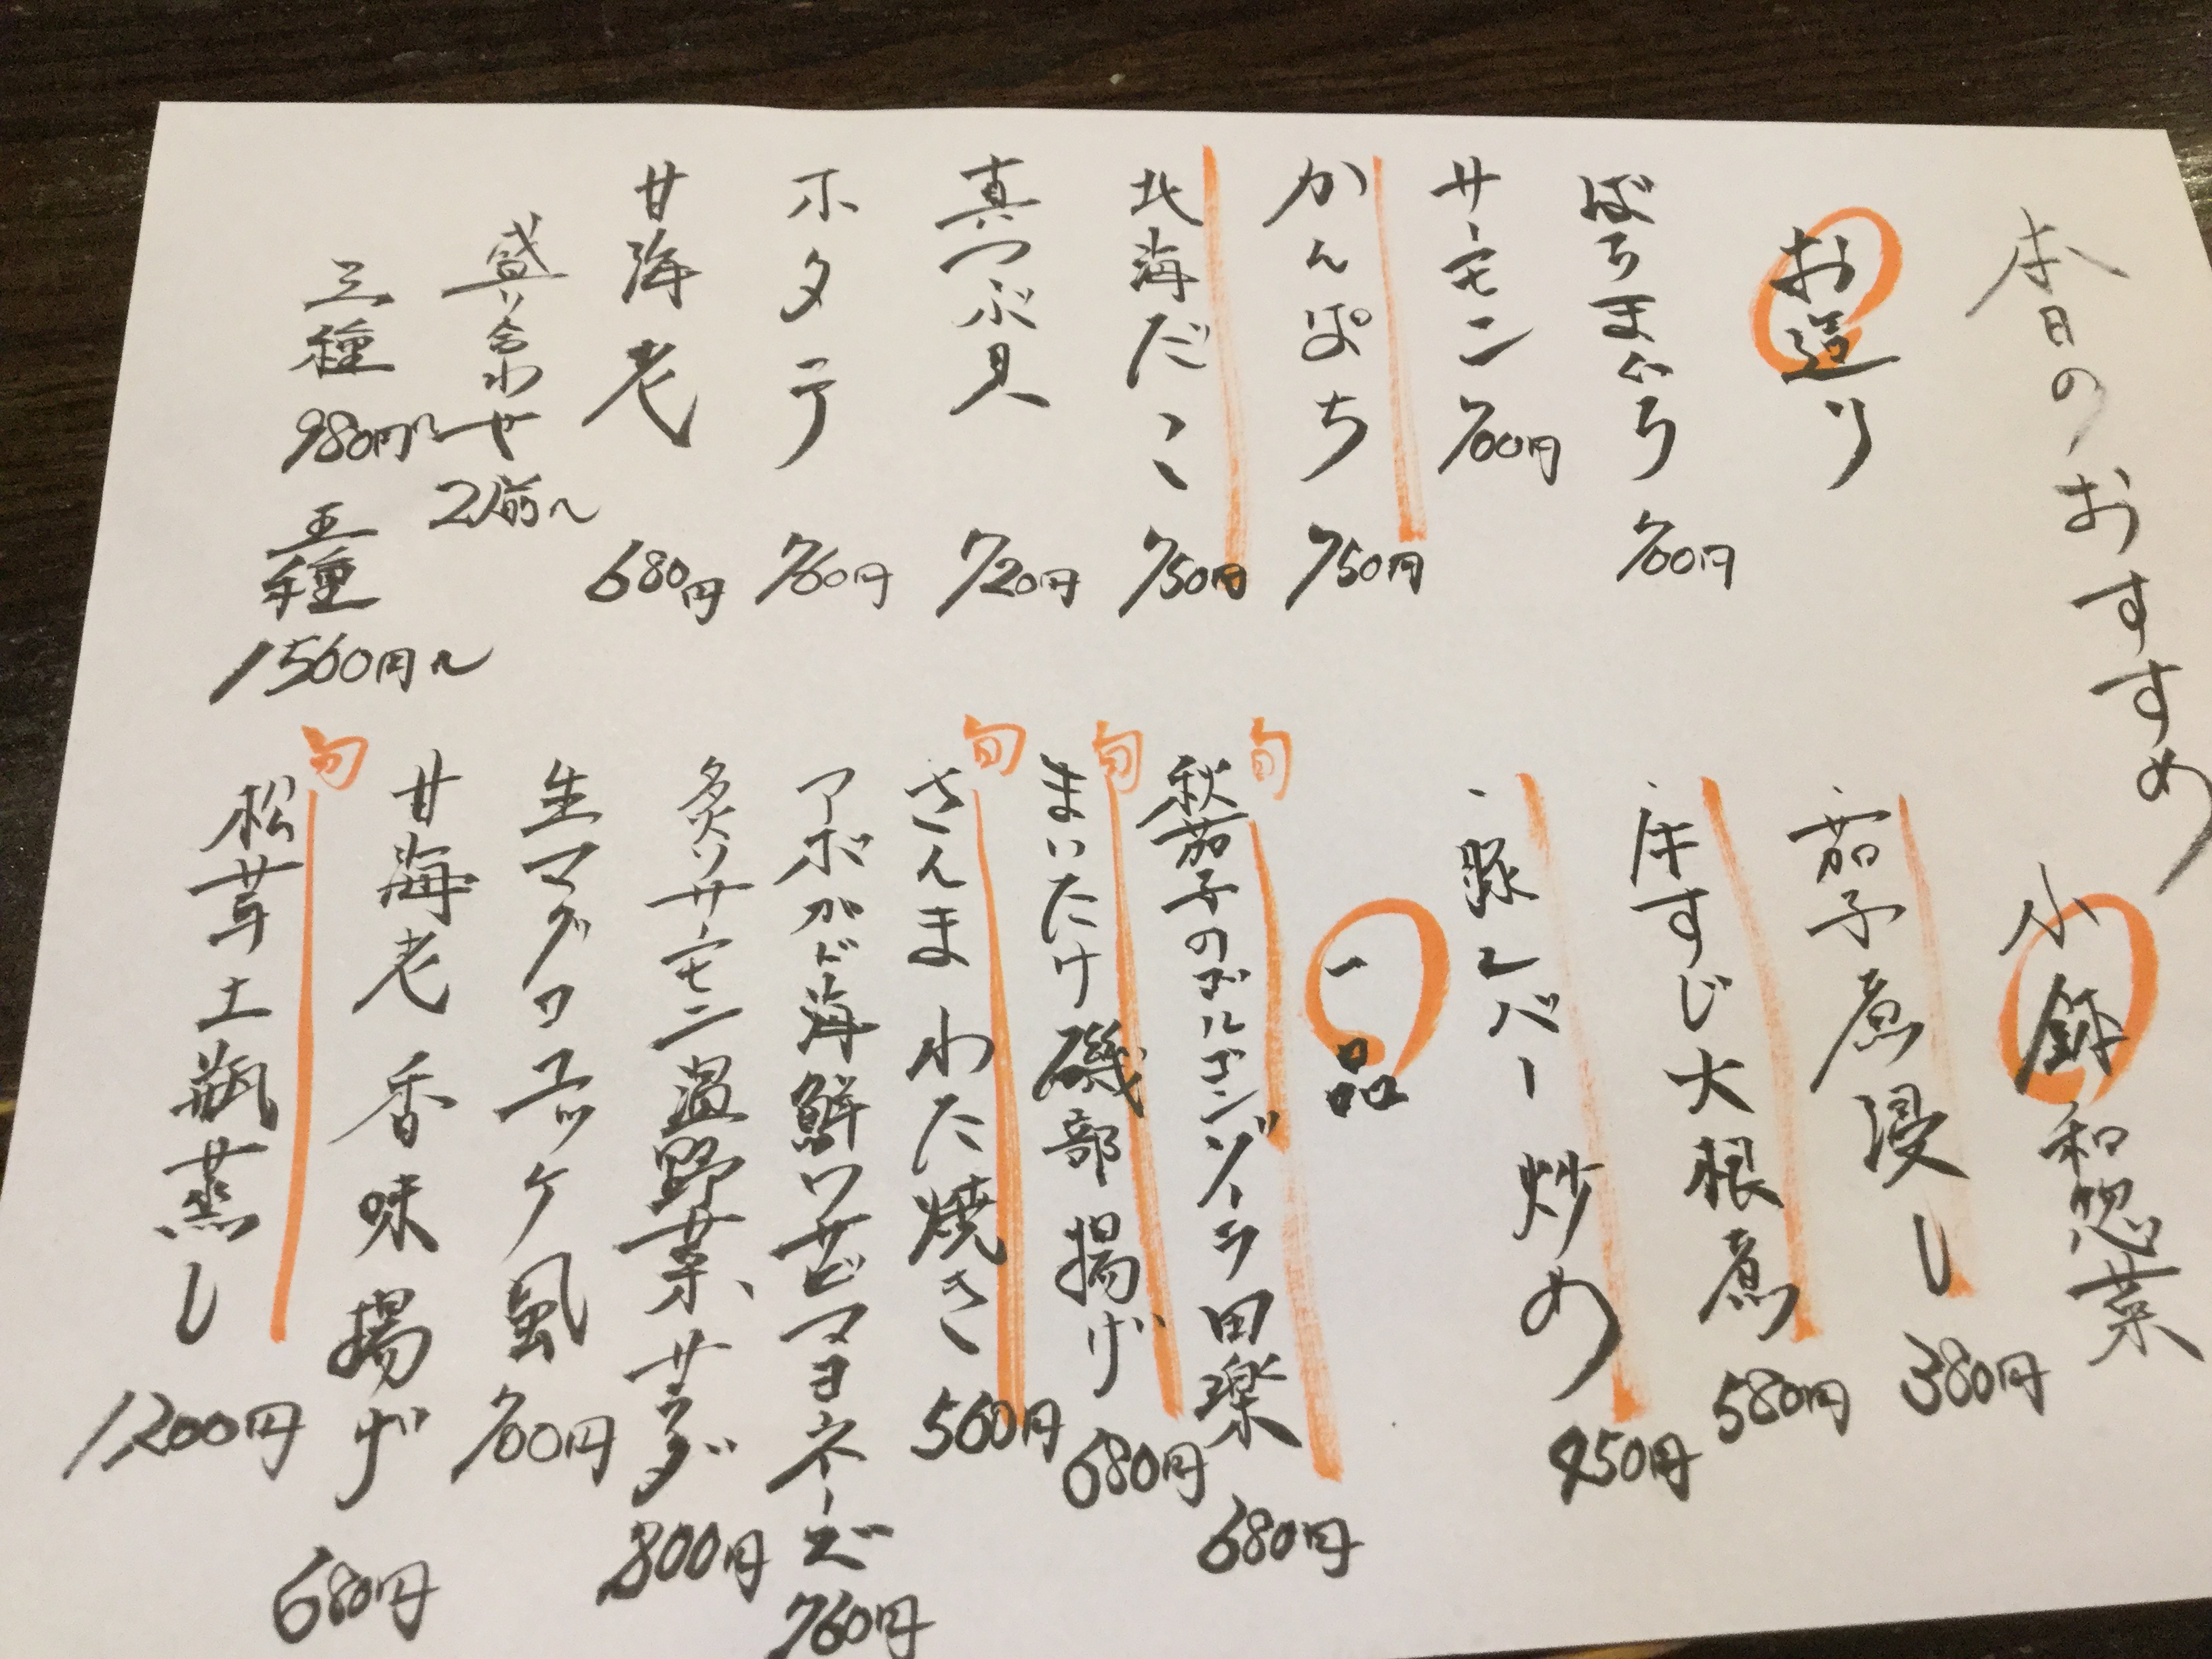 本日のおすすめ
お造り
ばちまぐろ 700円
サーモン 700円
かんぱち 750円
北海だこ 750円
真つぶ貝 720円
ホタテ 760円
甘海老 680円
盛り合わせ 2前〜
三種 980円〜 五種 1560円〜
小鉢 和惣菜
・茄子煮浸し 380円
・牛すじ大根煮 580円
・豚レバー炒め 450円
一品
旬 秋茄子のゴルゴンゾーラ田楽 680円
旬 まいたけ磯部揚げ 680円
旬 さんまわた焼き 560円
アボカド海鮮ワサビマヨネーズ 760円
炙りサーモン温野菜サラダ 800円
生マグロユッケ風 700円
甘海老香味揚げ 680円
旬 松茸土瓶蒸し 1200円